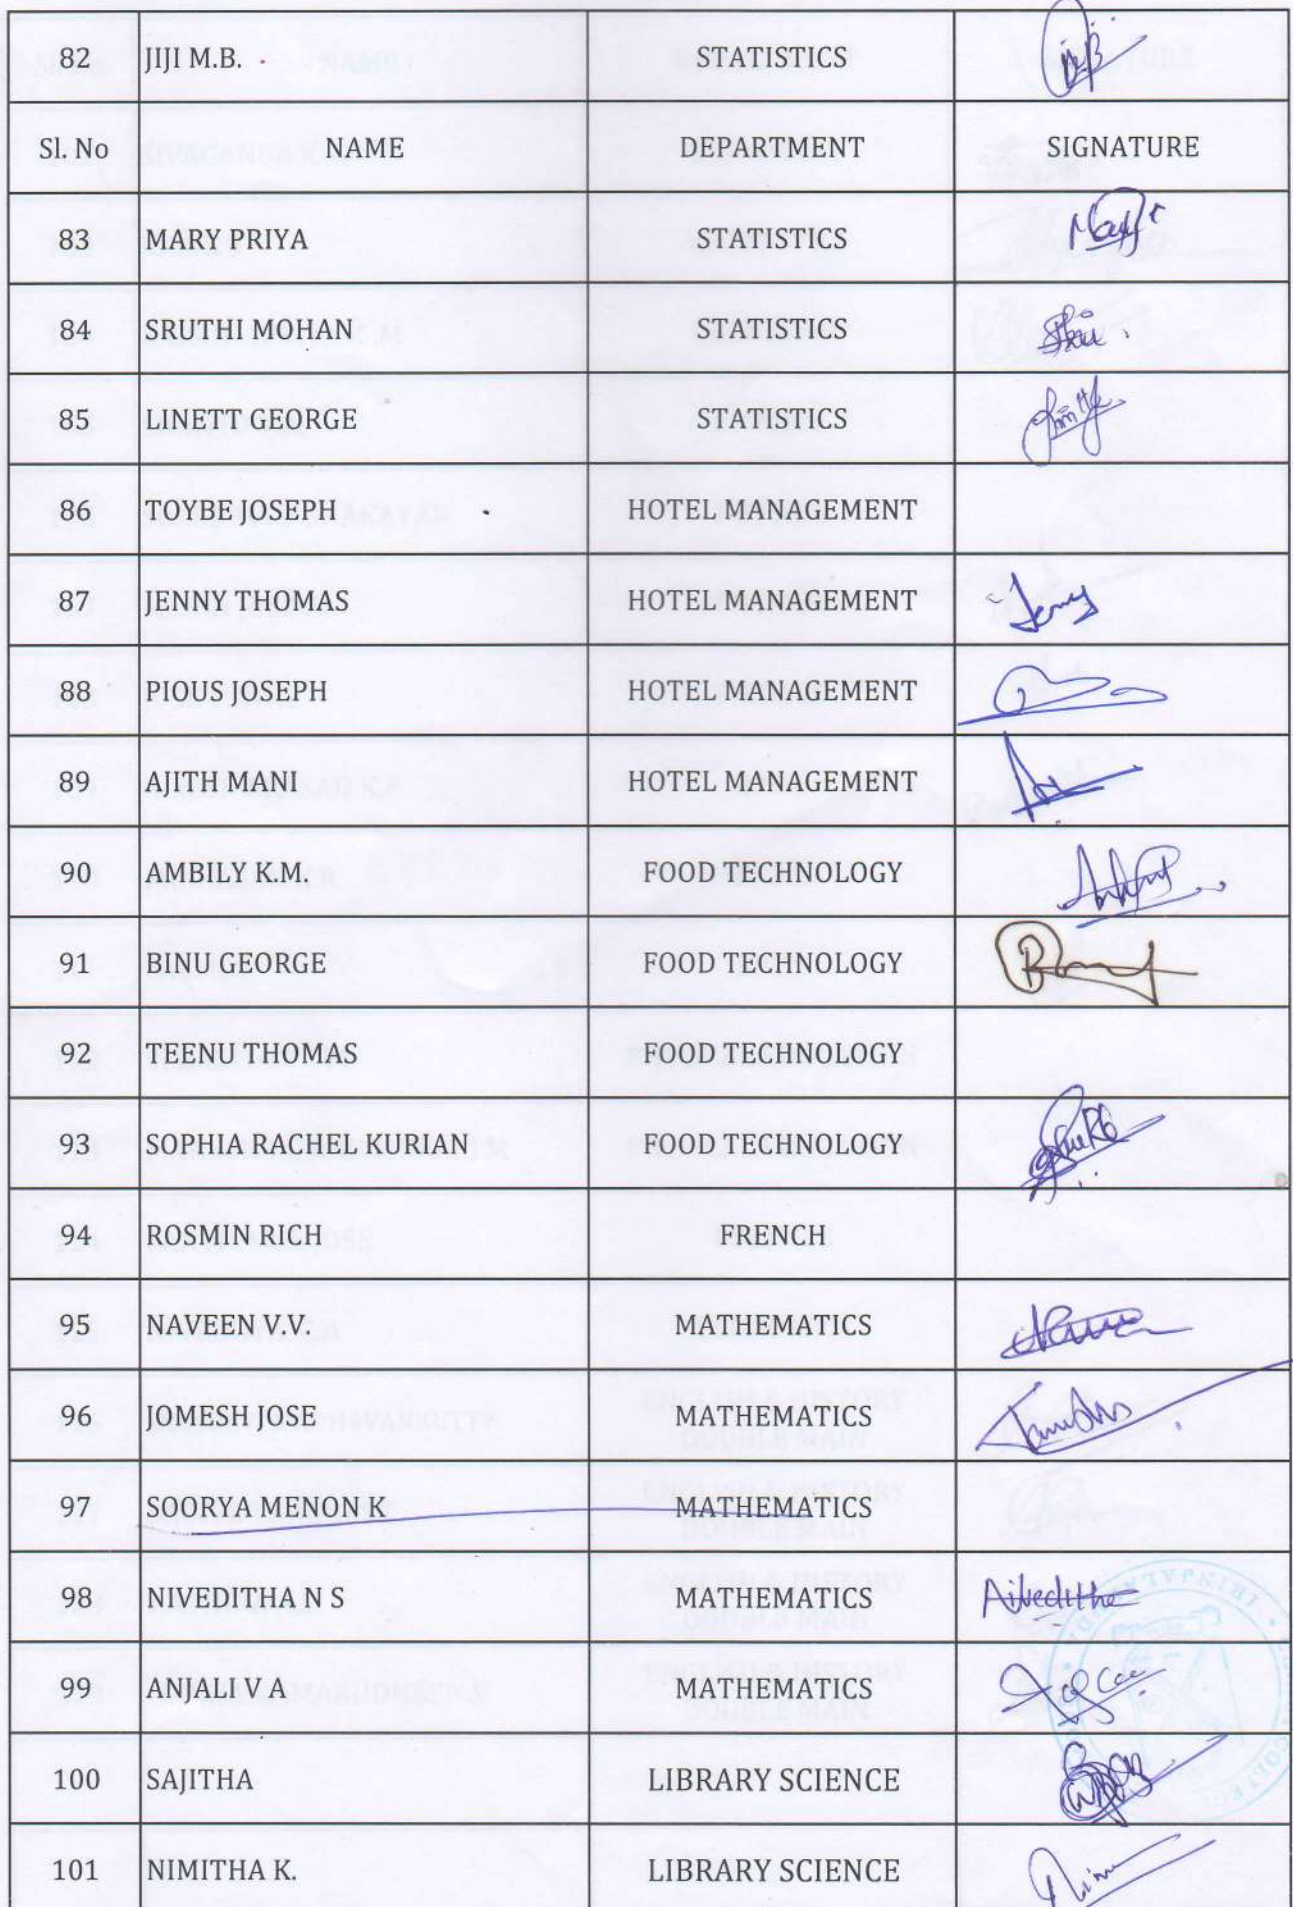 82 JIJI M.B. STATISTICS
Sl. No NAME DEPARTMENT SIGNATURE
83 MARY PRIYA STATISTICS
84 SRUTHI MOHAN STATISTICS
85 LINETT GEORGE STATISTICS
86 TOYBE JOSEPH HOTEL MANAGEMENT
87 JENNY THOMAS HOTEL MANAGEMENT Jenny
88 PIOUS JOSEPH HOTEL MANAGEMENT
89 AJITH MANI HOTEL MANAGEMENT
90 AMBILY K.M. FOOD TECHNOLOGY
91 BINU GEORGE FOOD TECHNOLOGY
92 TEENU THOMAS FOOD TECHNOLOGY
93 SOPHIA RACHEL KURIAN FOOD TECHNOLOGY
94 ROSMIN RICH FRENCH
95 NAVEEN V.V. MATHEMATICS
96 JOMESH JOSE MATHEMATICS
97 SOORYA MENON K MATHEMATICS
98 NIVEDITHA N S MATHEMATICS Niveditha
99 ANJALI V A MATHEMATICS
100 SAJITHA LIBRARY SCIENCE
101 NIMITHA K. LIBRARY SCIENCE